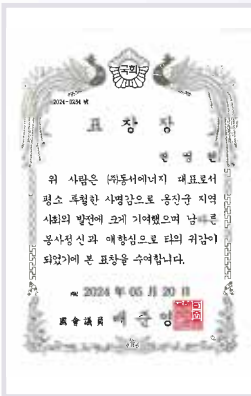 국회
2024-0284 호
표 창 장
위 사람은 (주)동서에너지 대표로서
평소 투철한 사명감으로 옹진군 지역
사회의 발전에 크게 기여했으며 남다른
봉사정신과 애향심으로 타의 귀감이
되었기에 본 표창을 수여합니다.
2024 年 05 月 20 日
國會議員